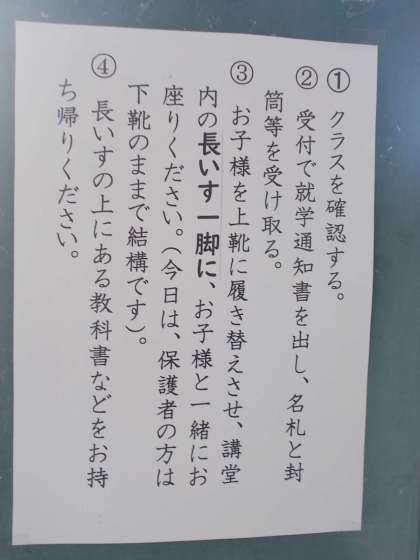 ①　クラスを確認する。
②　受付で就学通知書を出し、名札と封
筒等を受け取る。
③　お子様を上靴に履き替えさせ、講堂
内の長いす一脚に、お子様と一緒にお
座りください。（今日は、保護者の方は
下靴のままで結構です）。
④　長いすの上にある教科書などをお持
ち帰りください。